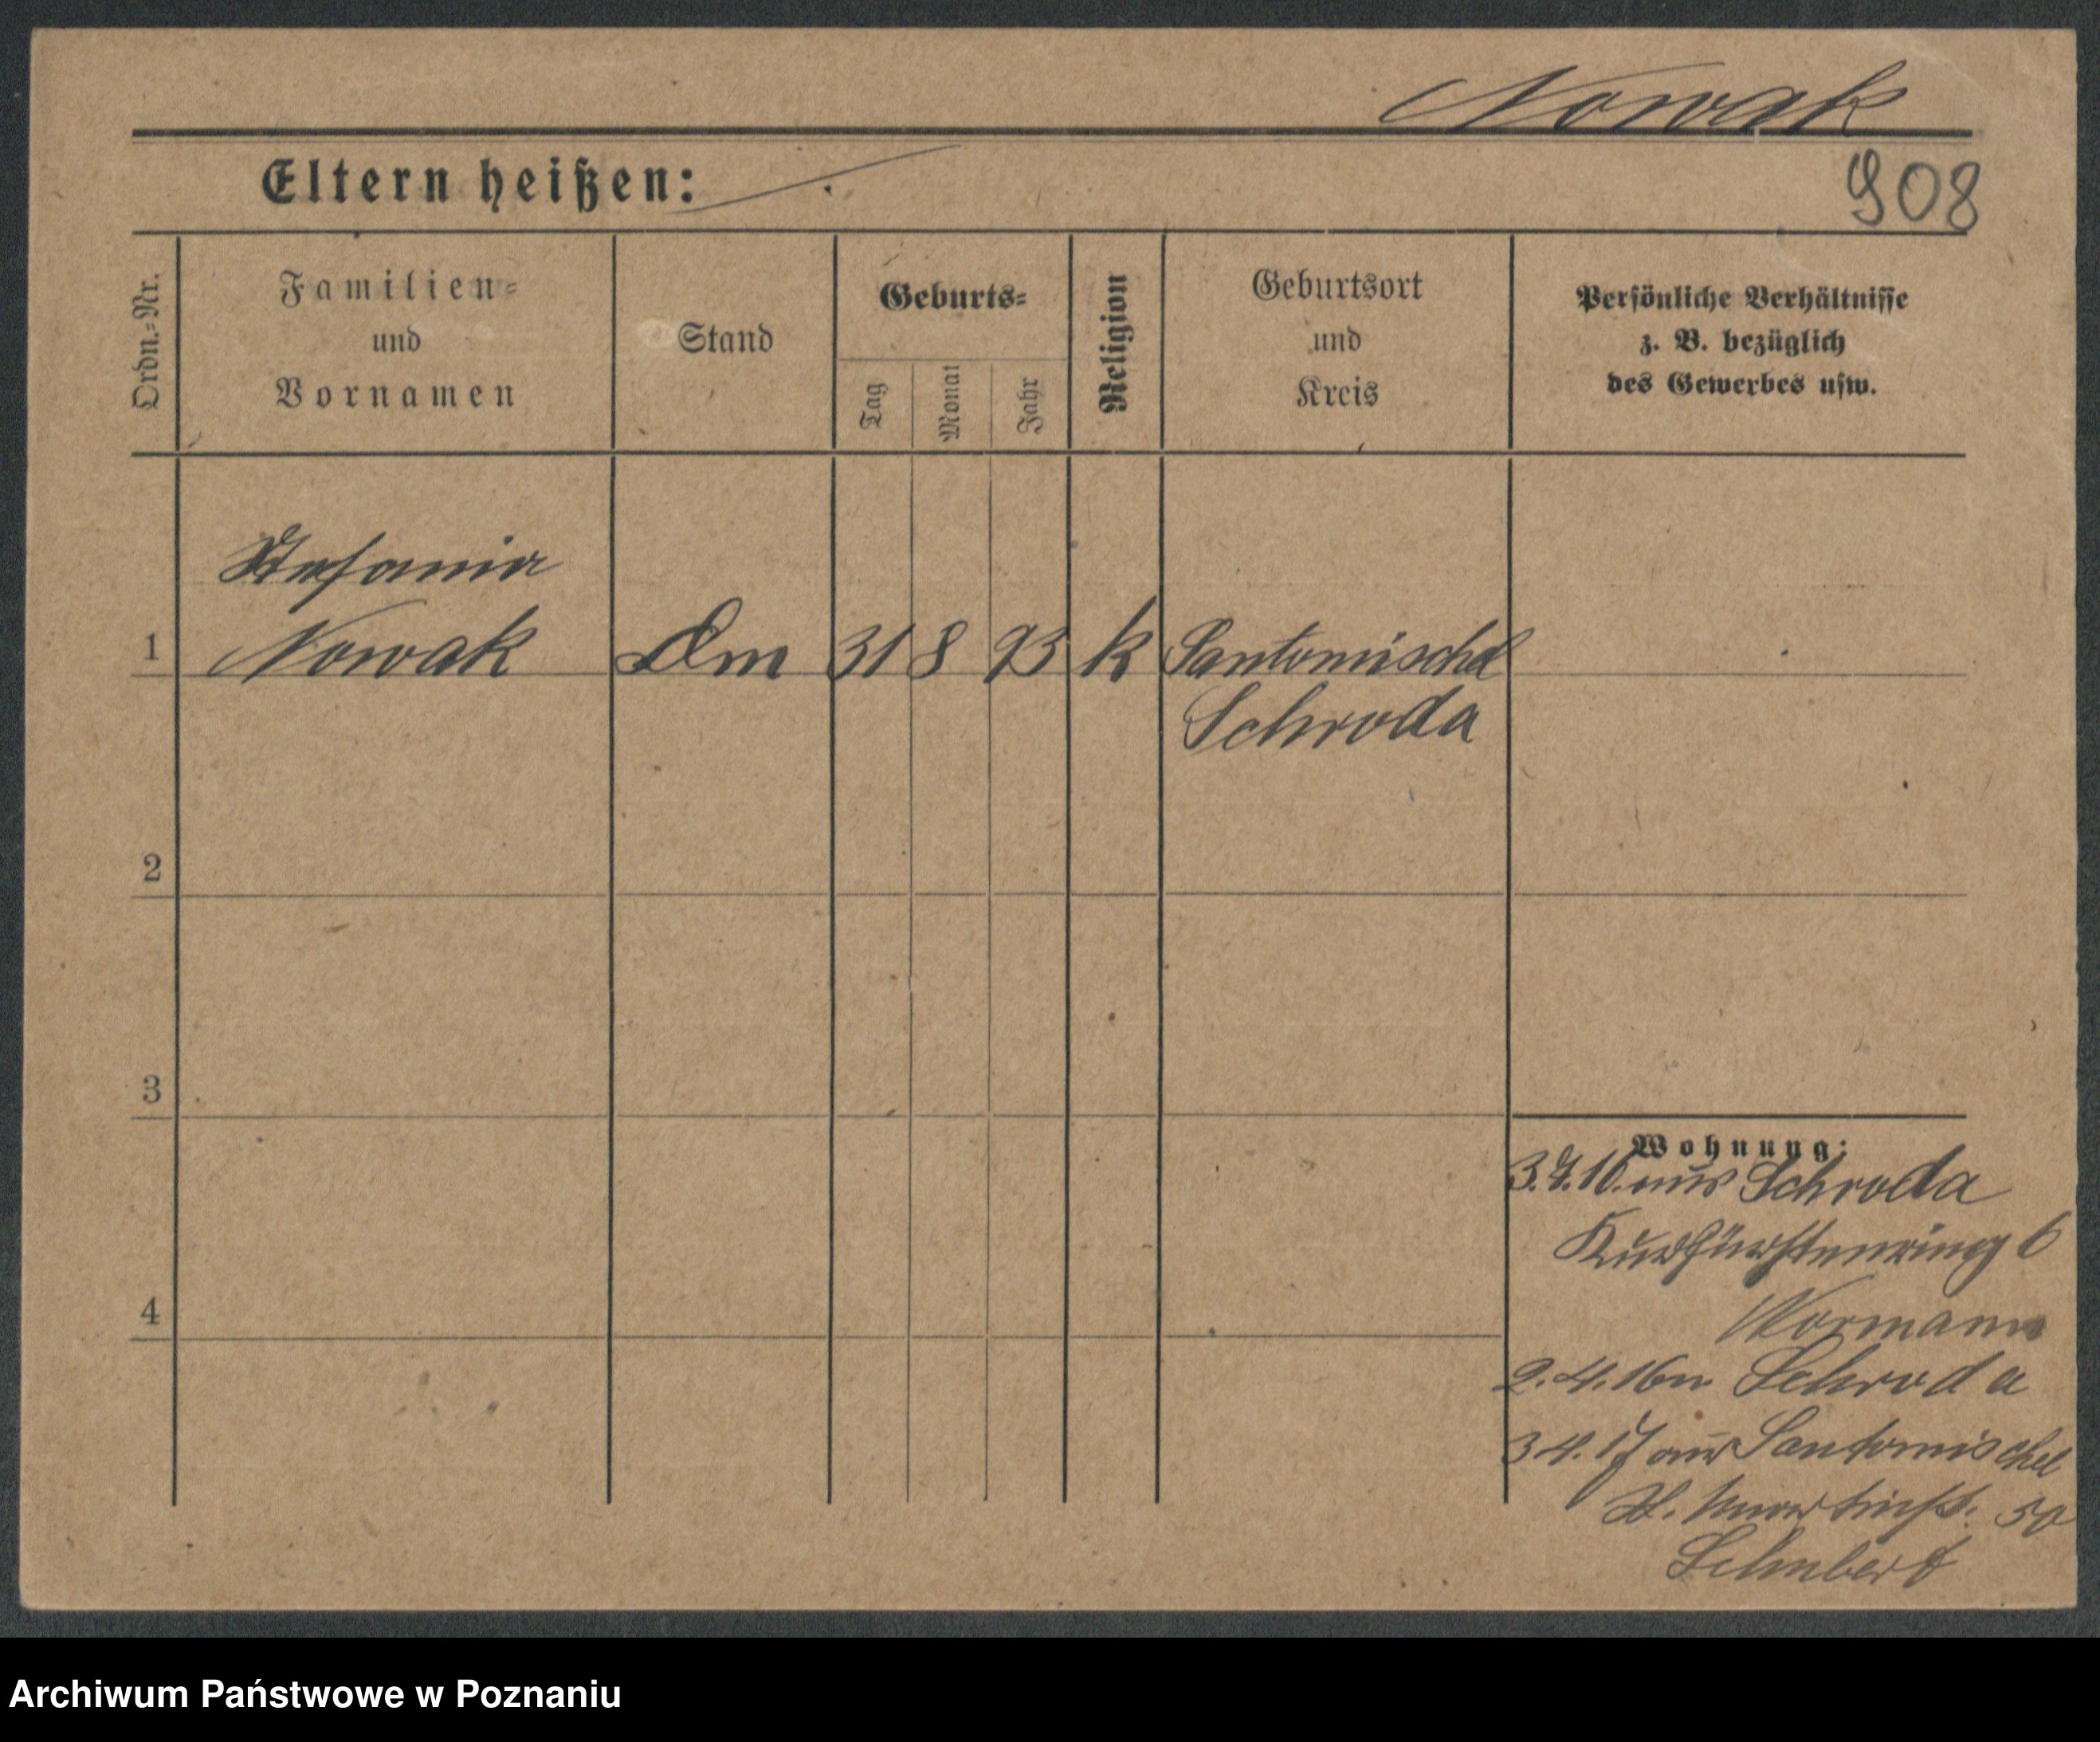 Nowak
Eltern heißen:
908
Ordn.-Nr.
Familien-
und
Vornamen
Stand
Geburts-
Tag
Monat
Jahr
Religion
Geburtsort
und
Kreis
Persönliche Verhältnisse
z. B. bezüglich
des Gewerbes usw.
Stefania
1 Nowak Dm 31 8 93 k Santomischel
Schroda
2
3
4
Wohnung:
aus Schroda
Kurfürstenring 6
2.4.16 n Schroda
3 4.17 aus Santomischel
50
Schubert
Archiwum Państwowe w Poznaniu